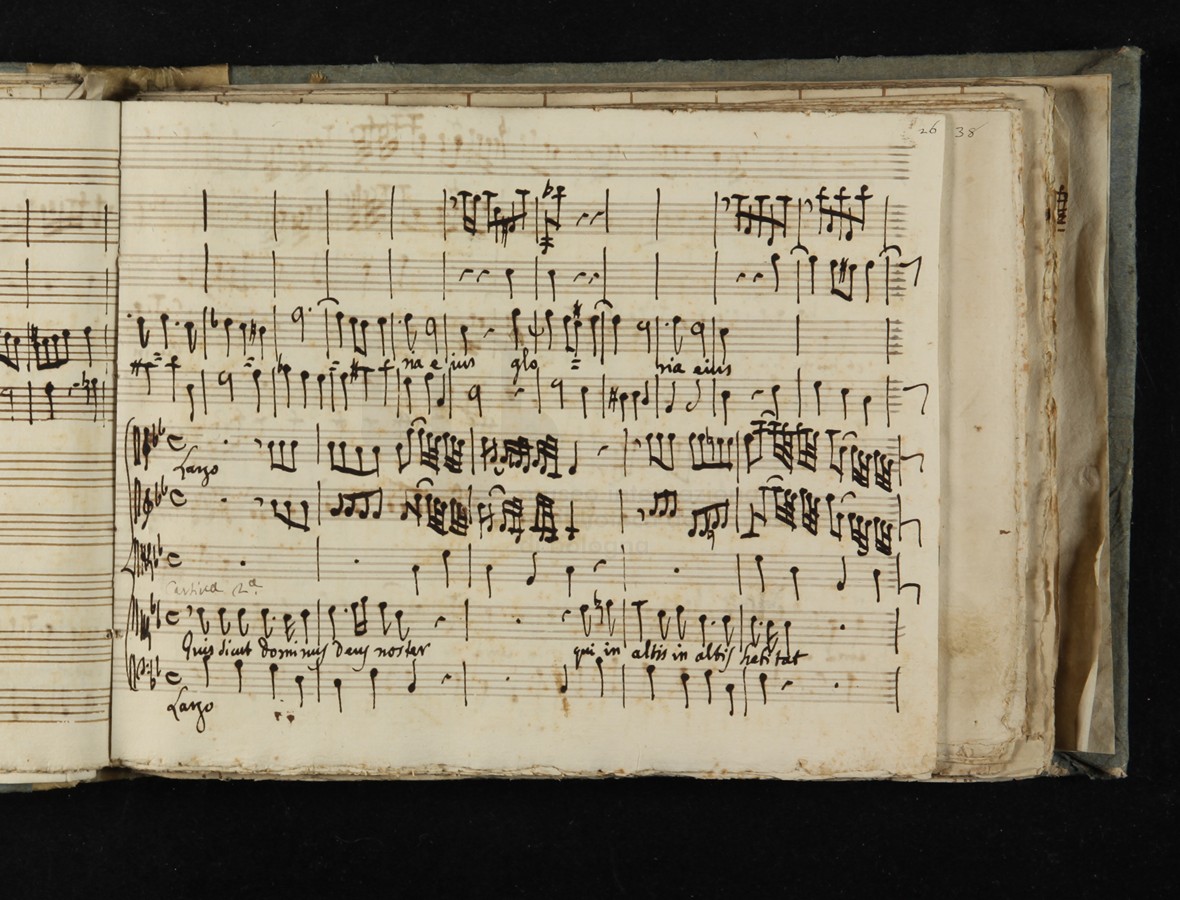 26 38
ria eius glo = ria eius
Largo
Quis sicut dominus deus noster qui in altis in altis habitat
Largo